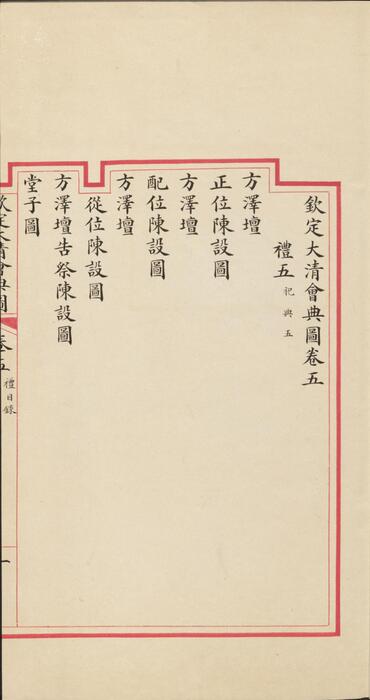 欽定大清會典圖卷五
禮五 祀典五
方澤壇
正位陳設圖
方澤壇
配位陳設圖
方澤壇
從位陳設圖
方澤壇告祭陳設圖
堂子圖
欽定大清會典圖 卷五 禮目錄 一